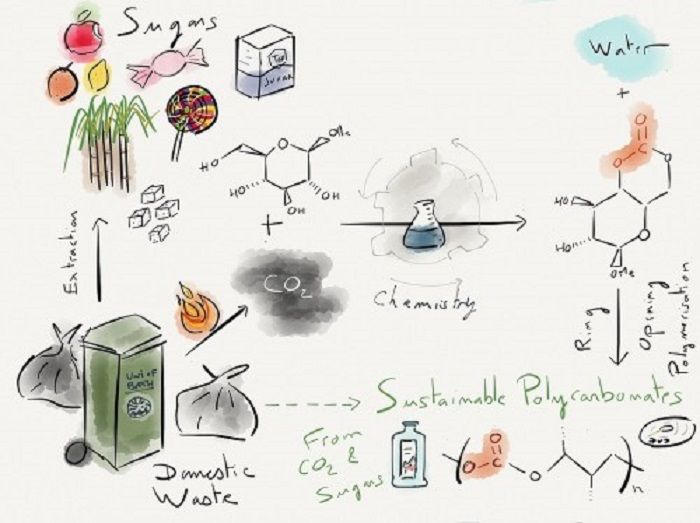 Sugars
SUGAR
Water
+
O
O
C
O
OMe
O
HO
HO
OH
OH
+
HO
HO
O
OMe
Extraction
CO2
Chemistry
Ring
Opening
Polymerisation
Univ of
Bath
Sustainable Polycarbonates
From
CO2 &
Sugars
O
O
C
O
n
Domestic
Waste